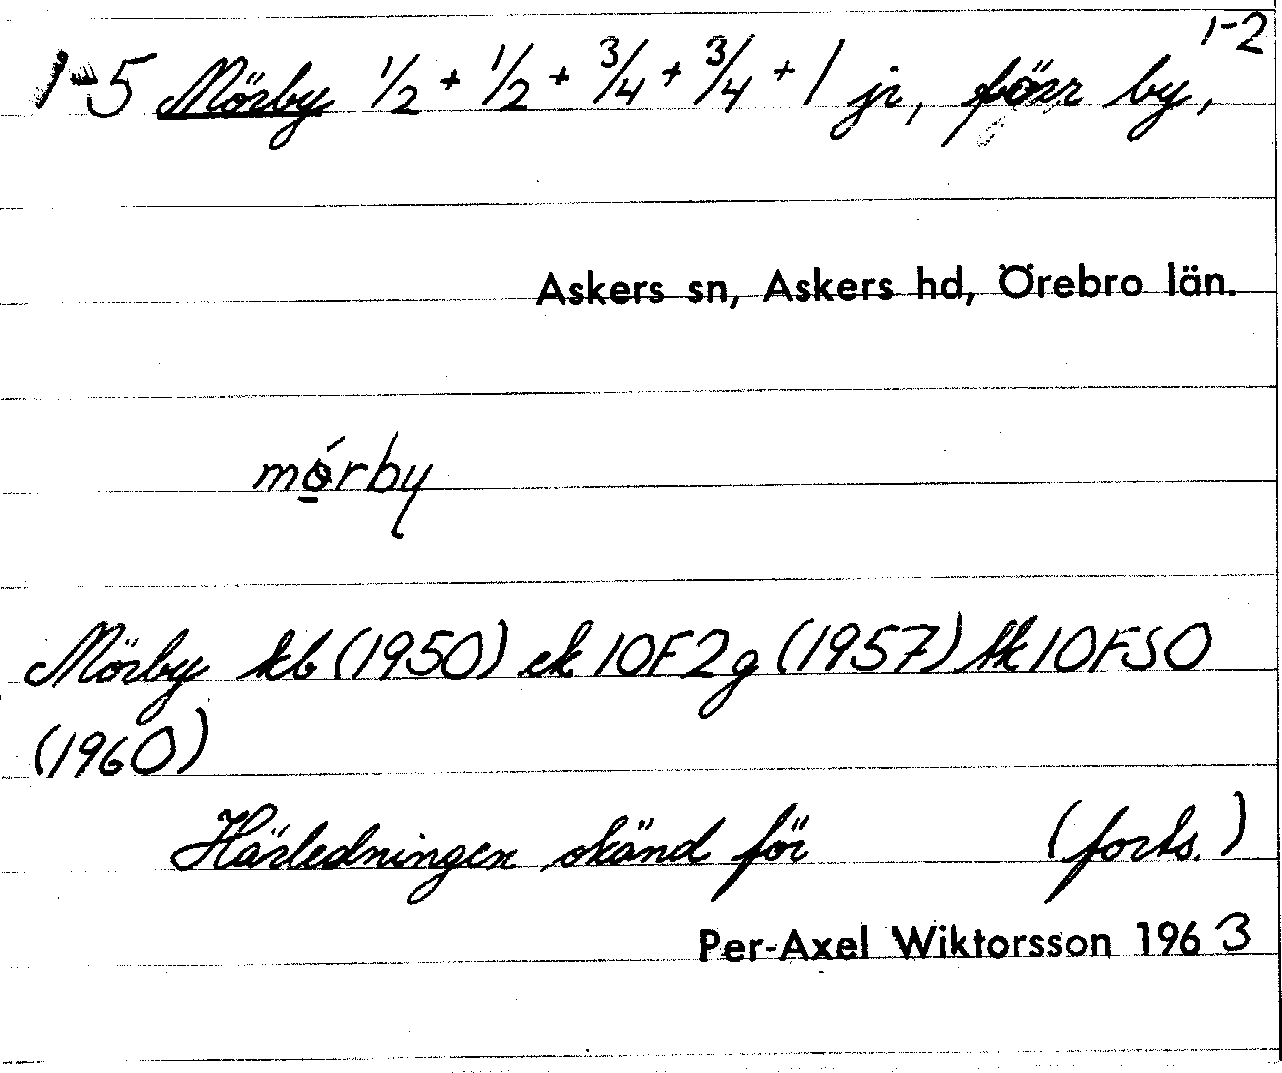 1-2
1-5 Mörby 1/2 + 1/2 + 3/4 + 3/4 + 1 jr, förr by,
Askers sn, Askers hd, Örebro län.
mö́rby
Mörby kb (1950) ek 10F2g (1957) tk 10FSO
(1960)
Härledningen okänd för (forts.)
Per-Axel Wiktorsson 1963